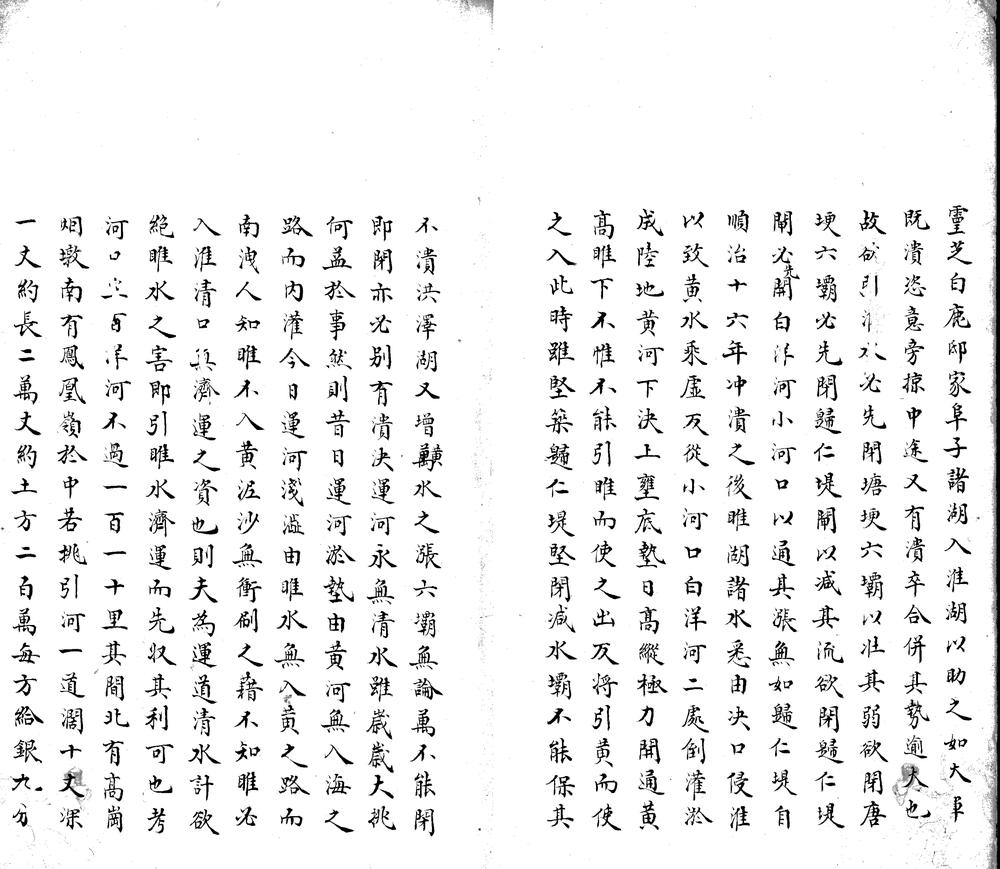 靈芝白鹿邸家阜子諸湖入淮湖以助之如大旱
既潰恣意旁掠中途又有潰卒合併其勢逾大也
故欲引淮水必先閉塘埂六壩以壯其弱欲閉唐
埂六壩必先閉歸仁堤閘以減其流欲閉歸仁堤
閘必先開白洋河小河口以通其漲無如歸仁堤自
順治十六年冲潰之後睢湖諸水悉由决口侵淮
以致黄水乘虛反從小河口白洋河二處倒灌淤
成陸地黄河下決上壅底墊日高縱極力開通黄
高睢下不惟不能引睢而使之出反将引黄而使
之入此時雖堅築歸仁堤堅閉减水壩不能保其
不潰洪澤湖又增黄水之漲六壩無論萬不能閉
即閉亦必别有潰決運河永無清水雖歲歲大挑
何益於事然則昔日運河淤墊由黄河無入海之
路而内灌今日運河淺溢由睢水無入黄之路而
南洩人知睢不入黄泥沙無衝刷之藉不知睢必
入淮清口無濟運之資也則夫為運道清水計欲
絕睢水之害即引睢水濟運而先収其利可也考
河口至白洋河不過一百一十里其間北有高崗
烟墩南有鳳凰嶺於中若挑引河一道濶十丈深
一丈約長二萬丈約土方二百萬每方給銀九分